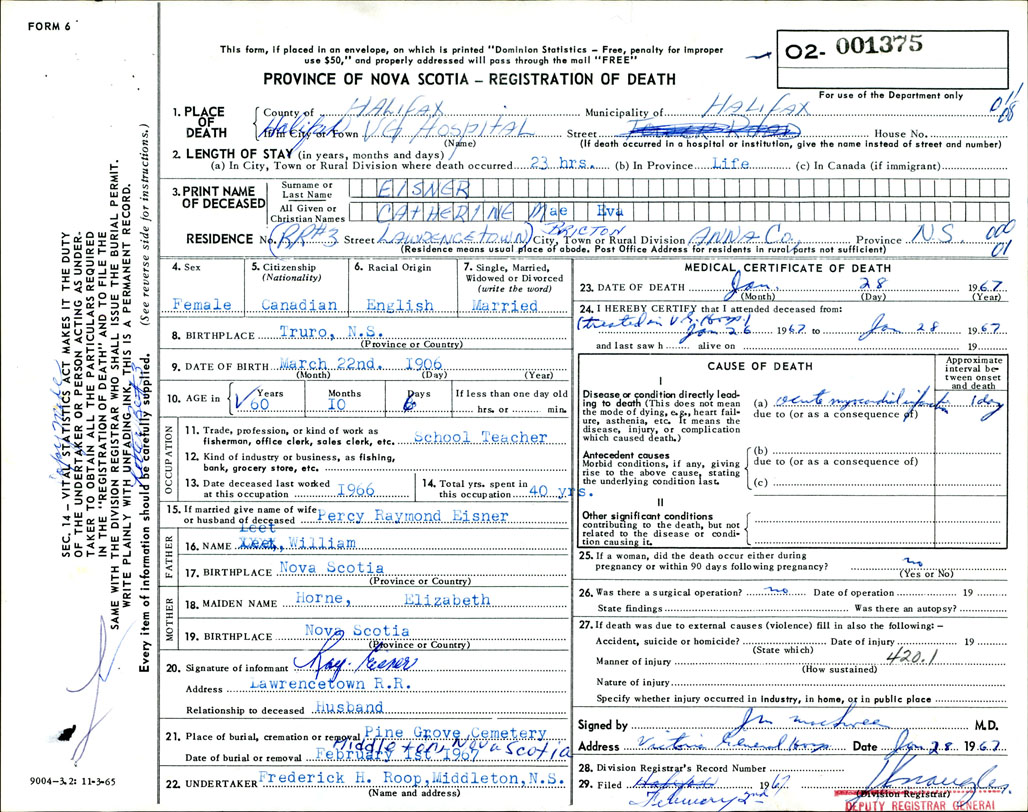 FORM 6
This form, if placed in an envelope, on which is printed "Dominion Statistics – Free, penalty for improper
use $50," and properly addressed will pass through the mail "FREE"
02- 001375
For use of the Department only
PROVINCE OF NOVA SCOTIA – REGISTRATION OF DEATH
1. PLACE OF DEATH
County of HALIFAX Municipality of HALIFAX
If in City or Town Halifax VG HOSPITAL Street House No.
(Name) (If death occurred in a hospital or institution, give the name instead of street and number)
2. LENGTH OF STAY (in years, months and days)
(a) In City, Town or Rural Division where death occurred 23 hrs. (b) In Province Life (c) In Canada (if immigrant)
3. PRINT NAME OF DECEASED
Surname or Last Name EISNER
All Given or Christian Names CATHERINE Mae Eva
RESIDENCE No. (RR#3 Street LAWRENCETOWN) City, Town or Rural Division BRICTON ANNA Co. Province N.S.
(Residence means usual place of abode. Post Office Address for residents in rural parts not sufficient)
4. Sex Female
5. Citizenship (Nationality) Canadian
6. Racial Origin English
7. Single, Married, Widowed or Divorced (write the word) Married
8. BIRTHPLACE Truro, N.S.
(Province or Country)
9. DATE OF BIRTH March 22nd. 1906
(Month) (Day) (Year)
10. AGE in Years 60 Months 10 Days 6 If less than one day old hrs. or min.
OCCUPATION
11. Trade, profession, or kind of work as fisherman, office clerk, sales clerk, etc. School Teacher
12. Kind of industry or business, as fishing, bank, grocery store, etc.
13. Date deceased last worked at this occupation 1966
14. Total yrs. spent in this occupation 40 yrs.
15. If married give name of wife or husband of deceased Percy Raymond Eisner
FATHER
16. NAME Leet, William
17. BIRTHPLACE Nova Scotia
(Province or Country)
MOTHER
18. MAIDEN NAME Horne, Elizabeth
19. BIRTHPLACE Nova Scotia
(Province or Country)
20. Signature of informant Ray Eisner
Address Lawrencetown R.R.
Relationship to deceased Husband
21. Place of burial, cremation or removal Pine Grove Cemetery
Middleton, Nova Scotia
Date of burial or removal February 1st 1967
22. UNDERTAKER Frederick H. Roop, Middleton, N.S.
(Name and address)
MEDICAL CERTIFICATE OF DEATH
23. DATE OF DEATH Jan. 28 1967
(Month) (Day) (Year)
24. I HEREBY CERTIFY that I attended deceased from:
(treated in V.G. Hosp.) Jan 26 1967 to Jan 28 1967
and last saw h alive on 19
CAUSE OF DEATH
Approximate interval between onset and death
I
Disease or condition directly leading to death (This does not mean the mode of dying, e.g., heart failure, asthenia, etc. It means the disease, injury, or complication which caused death.)
(a) acute myocardial infarction 1 day
due to (or as a consequence of)
Antecedent causes
Morbid conditions, if any, giving rise to the above cause, stating the underlying condition last.
(b)
due to (or as a consequence of)
(c)
II
Other significant conditions
contributing to the death, but not related to the disease or condition causing it.
25. If a woman, did the death occur either during
pregnancy or within 90 days following pregnancy? no
(Yes or No)
26. Was there a surgical operation? no Date of operation 19
State findings Was there an autopsy?
27. If death was due to external causes (violence) fill in also the following: –
Accident, suicide or homicide? Date of injury 19
(State which)
Manner of injury 420.1
(How sustained)
Nature of injury
Specify whether injury occurred in industry, in home, or in public place
Signed by M.D.
Address Victoria General Hosp Date Jan 28 1967
28. Division Registrar's Record Number
29. Filed February 2nd 1967
(Division Registrar)
DEPUTY REGISTRAR GENERAL
SEC. 14 – VITAL STATISTICS ACT MAKES IT THE DUTY
OF THE UNDERTAKER OR PERSON ACTING AS UNDER-
TAKER TO OBTAIN ALL THE PARTICULARS REQUIRED
IN THE "REGISTRATION OF DEATH" AND TO FILE THE
SAME WITH THE DIVISION REGISTRAR WHO SHALL ISSUE THE BURIAL PERMIT.
WRITE PLAINLY WITH UNFADING INK. THIS IS A PERMANENT RECORD.
Every item of information should be carefully supplied. (See reverse side for instructions.)
9004-3.2: 11-3-65